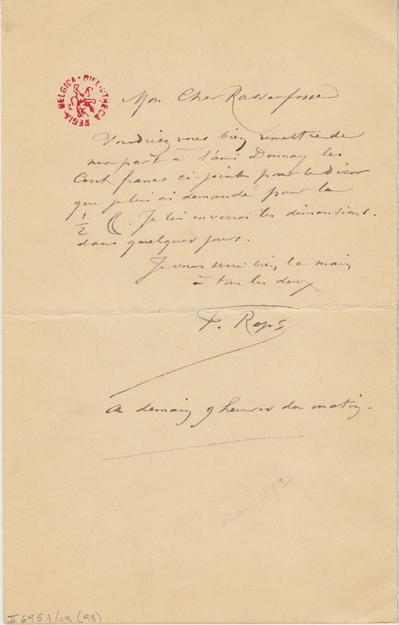 BELGICA · BIBLIOTHECA REGIA
Mon Cher Rassenfosse
Voudriez vous bien remettre de
ma part à l'ami Donnay les
Cent francs ci-joint pour le décor
que je lui ai demandé pour la
1/2 Je lui enverrai les dimensions
dans quelques jours.
Je vous serre bien la main
à tous les deux
F. Rops
A demain 9 heures du matin.
Mars 1892
II 6957/19 (98)